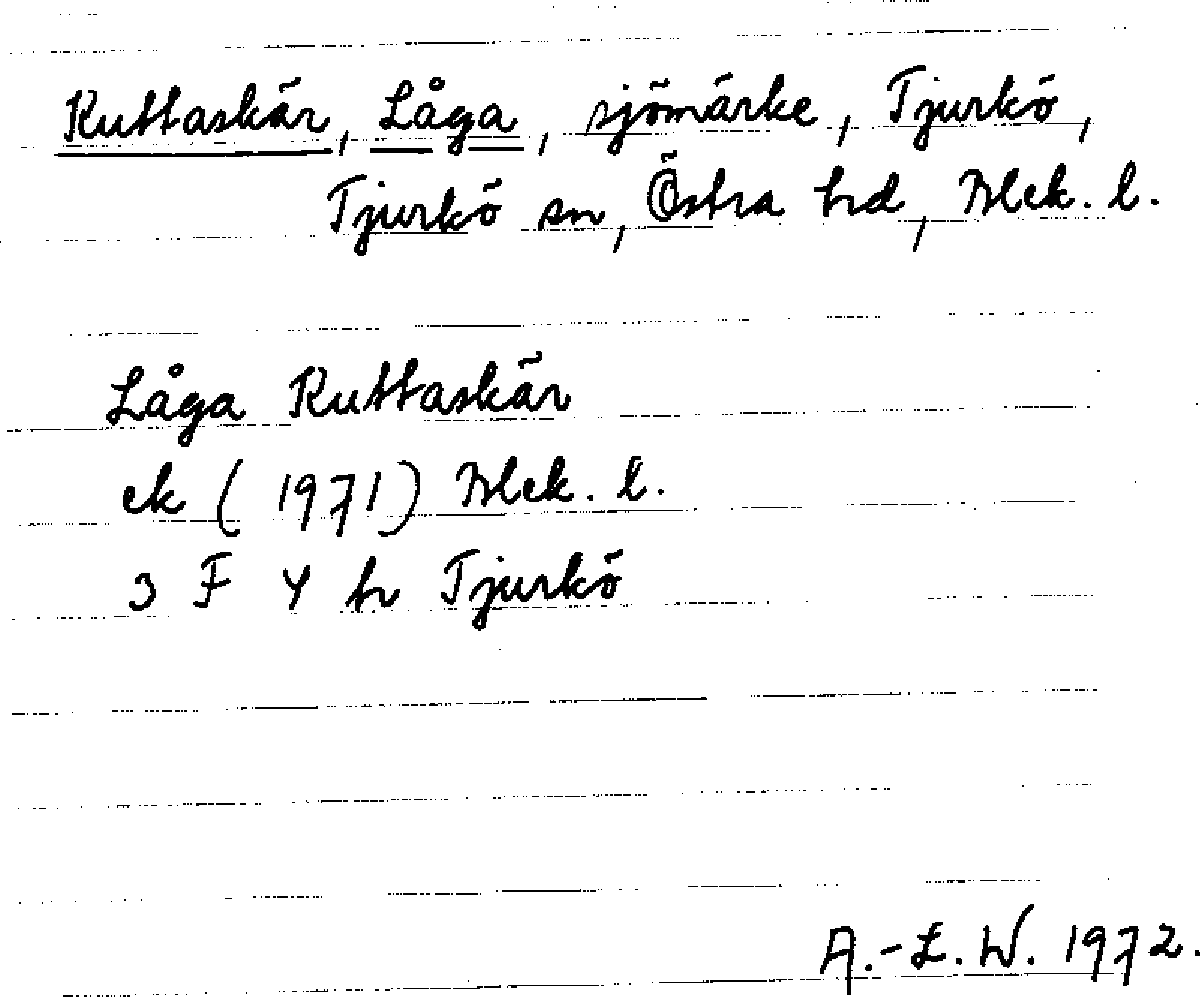 Ruttaskär, Låga, sjömärke, Tjurkö,
Tjurkö sn, Östra hd, Blek. l.
Låga Ruttaskär
ek (1971) Blek. l.
3 F 4 h Tjurkö
A.-L.W. 1972.